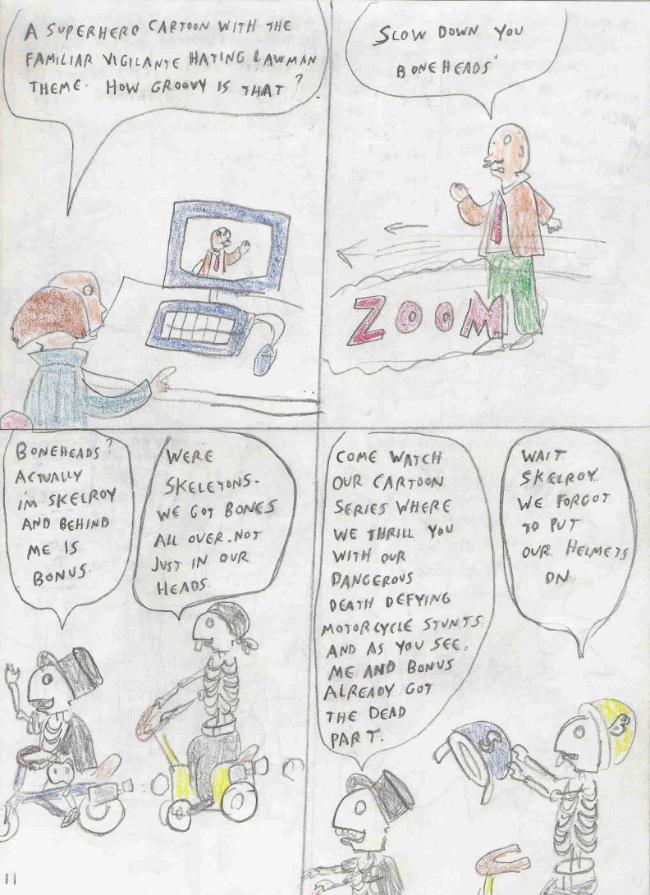 A SUPERHERO CARTOON WITH THE
FAMILIAR VIGILANTE HATING LAWMAN
THEME. HOW GROOVY IS THAT?
SLOW DOWN YOU
BONEHEADS"
ZOOM
BONEHEADS?
ACTUALLY
I'M SKELROY
AND BEHIND
ME IS
BONUS.
WERE
SKELETONS.
WE GOT BONES
ALL OVER. NOT
JUST IN OUR
HEADS.
COME WATCH
OUR CARTOON
SERIES WHERE
WE THRILL YOU
WITH OUR
DANGEROUS
DEATH DEFYING
MOTORCYCLE STUNTS.
AND AS YOU SEE,
ME AND BONUS
ALREADY GOT
THE DEAD
PART.
WAIT
SKELROY.
WE FORGOT
TO PUT
OUR HELMETS
ON
S
B
11